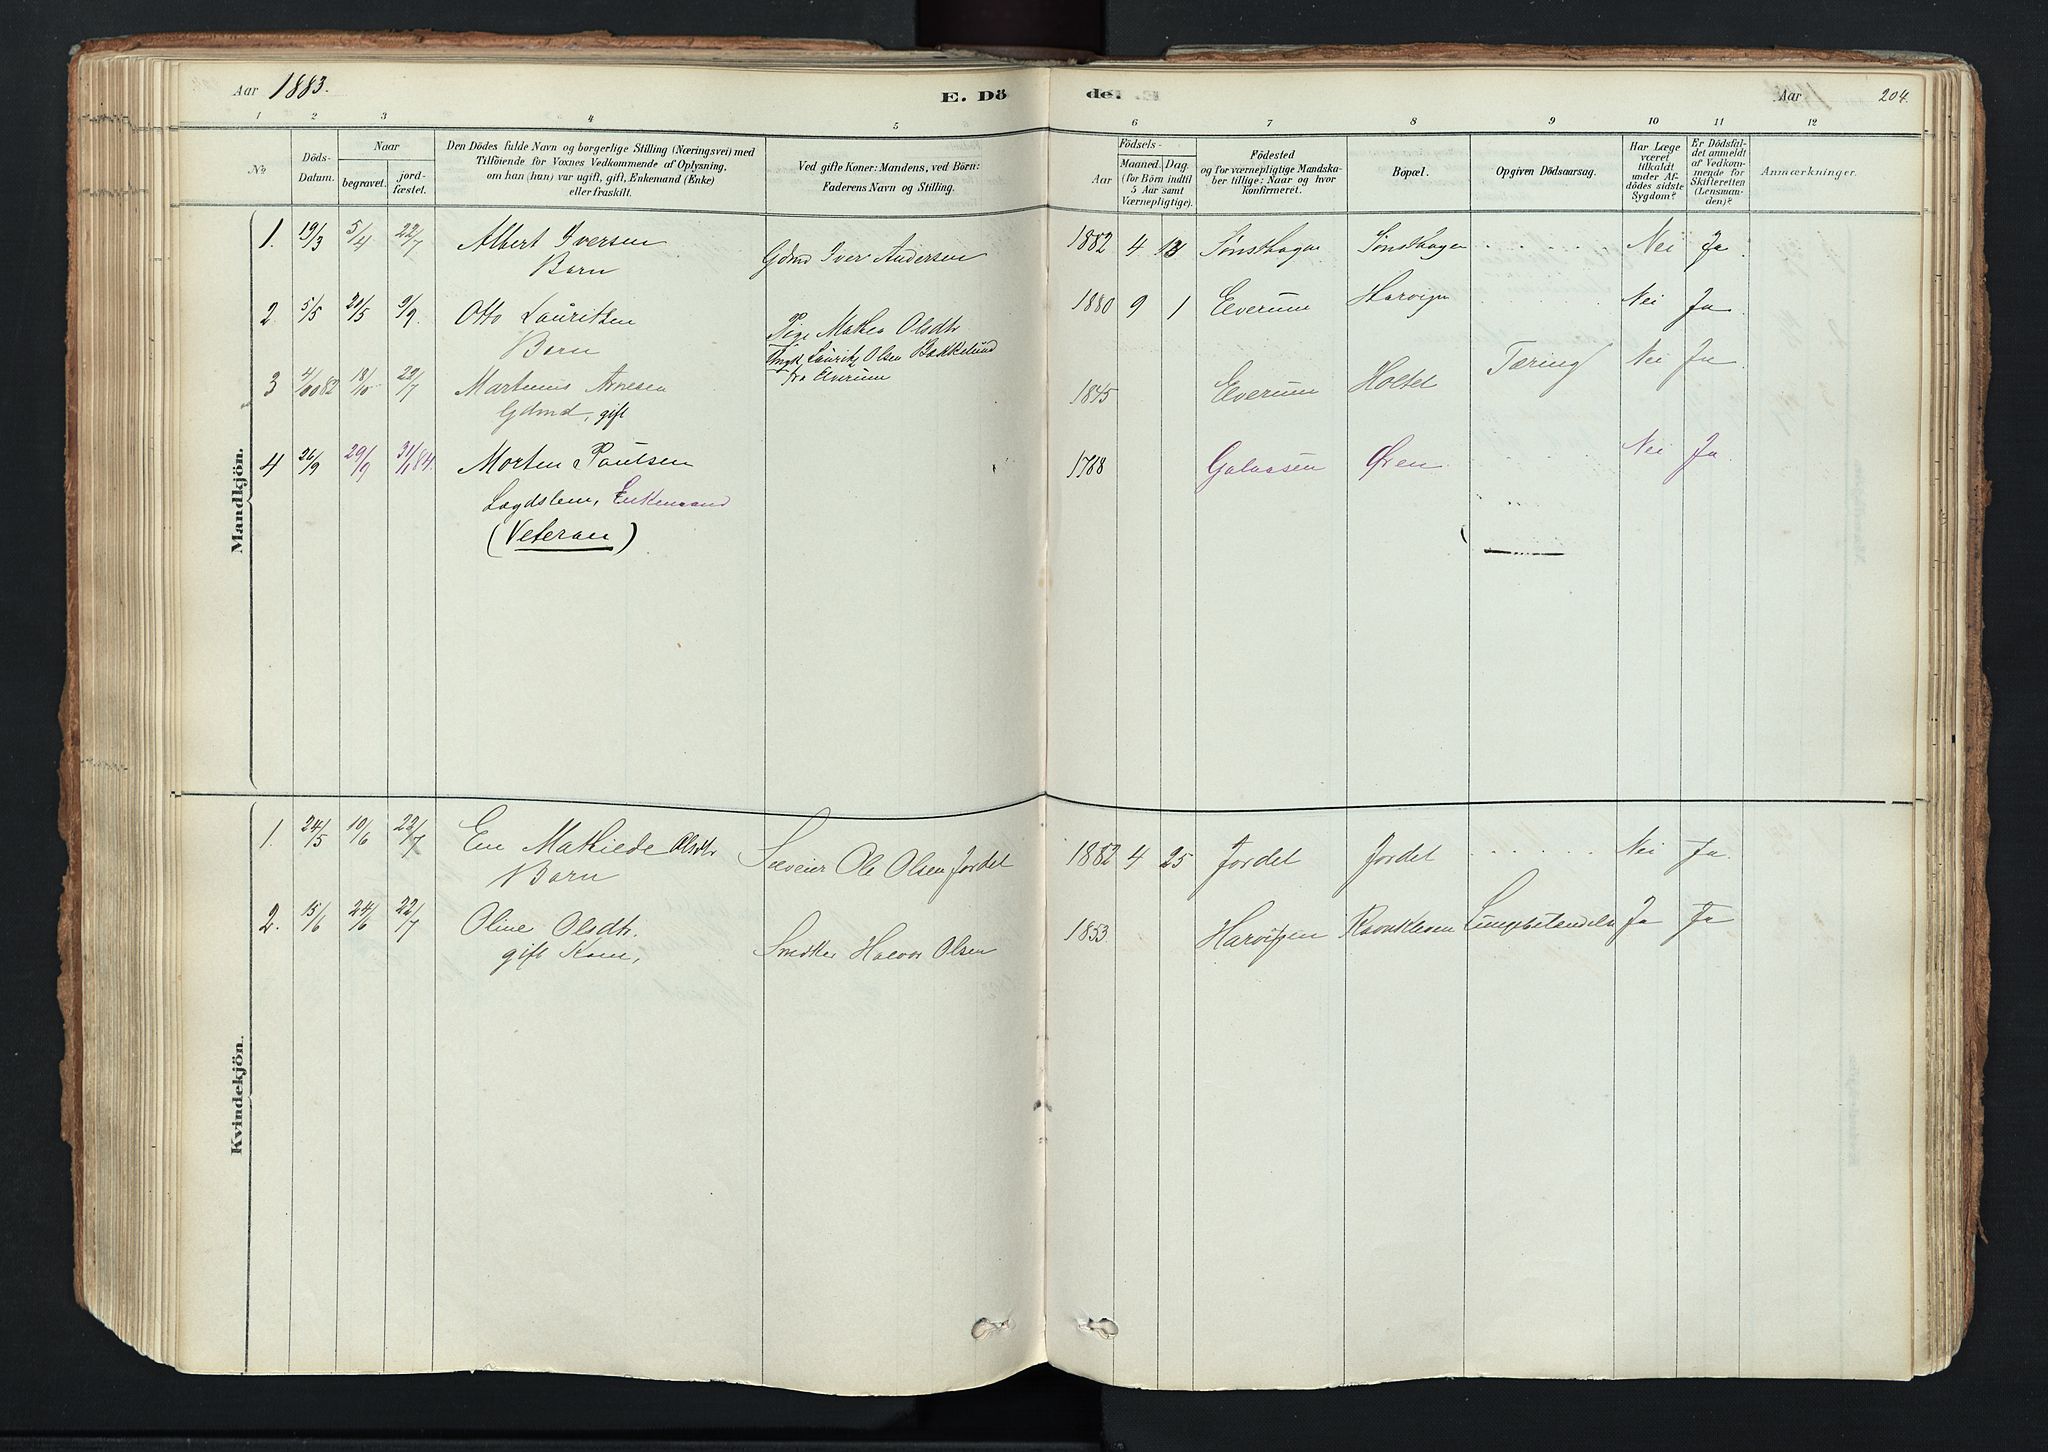 Aar 1883.
E. Dö
de.
Aar
204.
1 2 3 4 5 6 7 8 9 10 11 12
№
Döds-
Datum.
Naar
begravet.
jord-
fæstet.
Den Dödes fulde Navn og borgerlige Stilling (Næringsvei) med
Tilföiende for Voxnes Vedkommende af Oplysning,
om han (hun) var ugift, gift, Enkemand (Enke)
eller fraskilt.
Ved gifte Koner: Mandens, ved Börn:
Faderens Navn og Stilling.
Födsels-
Aar
Maaned. Dag.
(for Börn indtil
5 Aar samt
Værnepligtige).
Födested
og for værnepligtige Mandska-
ber tillige: Naar og hvor
konfirmeret.
Bopæl.
Opgiven Dödsaarsag.
Har Læge
været
tilkaldt
under Af-
dödes sidste
Sygdom?
Er Dödsfal-
det anmeldt
af Vedkom-
mende for
Skifteretten
(Lensman-
den)?
Anmærkninger.
Mandkjön.
1. 19/3 5/4 22/7 Albert Iversen Gdmd Iver Andersen 1882 4 Sønsthagen Sønsthagen Nei Ja
Barn
2. 5/5 20/5 9/9. Otto Lauritsen Pige Mathea Olsdtr 1880 9 1 Elverum Harvigen Nei Ja
Barn Ungk. Lauritz Olsen Bakkelund
fra Elverum
3 18/10 22/7 Martinus Arnesen 1845 Elverum Holtet Tæring Nei Ja
Gdmd, gift
4 26/9 29/9 Morten Paulsen 1788 Galaasen Øren Nei Ja
Lægdslem, Enkemand
(Veteran)
Kvindekjön.
1. 24/5 10/6 22/7 Eve Mathilde Olsdtr Selveier Ole Olsen Jordet 1882 4 25 Jordet Jordet Nei Ja.
Barn
2. 15/6 24/6 22/7 Oline Olsdtr. Halvor Olsen 1853. Harvigen Ravnkleven Lungebetændelse Ja Ja
gift Kone,